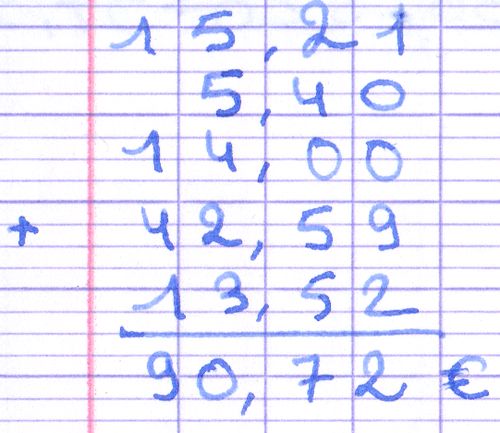 15,21
5,40
14,00
+ 42,59
13,52
90,72 €